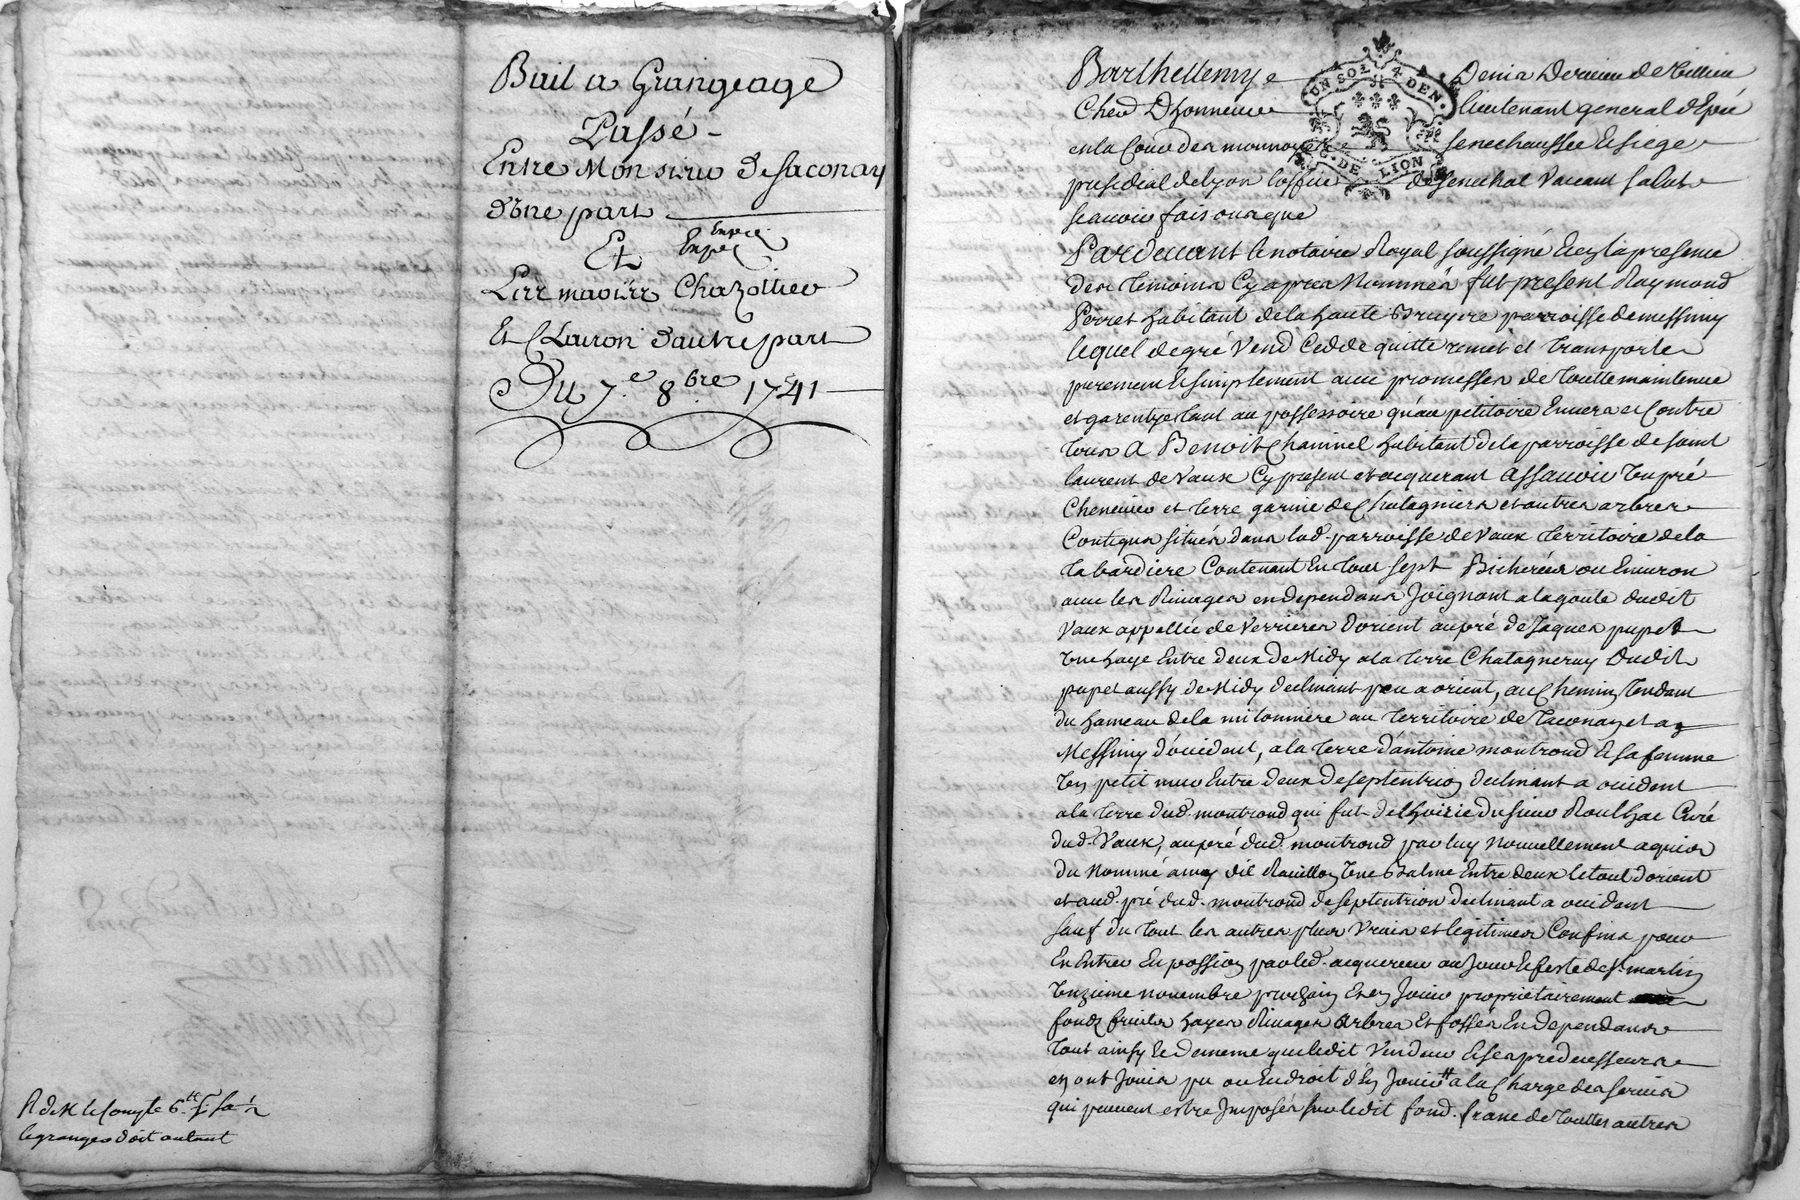 Bail a Grangeage
Passé -
Entre Monsieur De saconay
d'une part
Et
Les mariez Chazottier
Et Clairon d'autre part
Du 7.e 8.bre 1741
R de M le Comte 6.tt
le granger doit autant
Barthellemy Denis
Cher D'honneur lieutenant general d'Epée
en la Cour des monnoyes senechaussée et siege
presidial de Lyon l'office de senechal Vaccant salut
scavoir fais ons que
UN SOL 4 DEN.
G. DE LION
Pardevant le notaire Royal soussigné et en la presence
des temoins Cy apres Nommés fut present Raymond
Perret habitant de la haute Bruyere parroisse de messimy
lequel de gré Vend Cedde quitte remet et transporte
purement et simplement avec promesses de toutte maintenue
et garentye tant au possessoire qu'au petitoire Envers et Contre
tous A Benoit Chaminel habitant de la parroisse de saint
laurent de Vaux Cy present et acquerant Assavoir Un pré
Chenevier et terre garnie de Chatagniers et autres arbres
Contigus situés dans lad. parroisse de Vaux territoire de la
tabardiere Contenant En tout sept Bicherées ou Environ
avec les Rivages en dependans Joignant a la goute dudit
Vaux appellée de Verrieres d'orient au pré de Jaques pupet
Une haye Entre deux de Midy a la terre Chatagneray Dudit
pupet aussy de Midy declinant peu a orient, au Chemin tendant
du hameau de la mitonniere au territoire de taconay et a
Messimy d'occident, a la terre d'antoine montrond et sa femme
Un petit mur Entre deux de septentrion declinant a occident
a la terre dud. montrond qui fut de l'hoirie du sieur Roulhac Curé
dud. Vaux, au pré dud. montrond par luy nouvellement acquis
du Nommé amy dit Rouillon Une Balme Entre deux le tout d'orient
et aud. pré dud. montrond de septentrion declinant a occident
sauf du tout les autres plus Vrais et legitimes Confins pour
En Entrer En possion par led. acquereur au Jour et feste de st. martin
Unzieme novembre prochain Et en Jouir proprietairement
fonds fruits hayes Rivages Arbres Et fossés En dependans
tout ainsy et de meme que ledit Vendeur et ses predecesseurs
en ont Jouis pu ou Eu droit d'En Jouir a la Charge des servis
qui peuvent estre Imposés sur ledit fond. franc de touttes autres